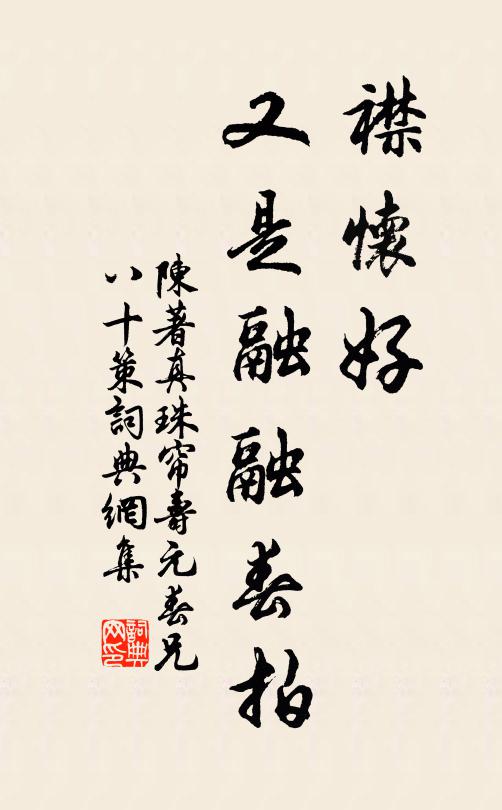 襟懷好
又是融融春拍
陳著真珠帘壽元春兄
八十策詞典網集
詞典网印